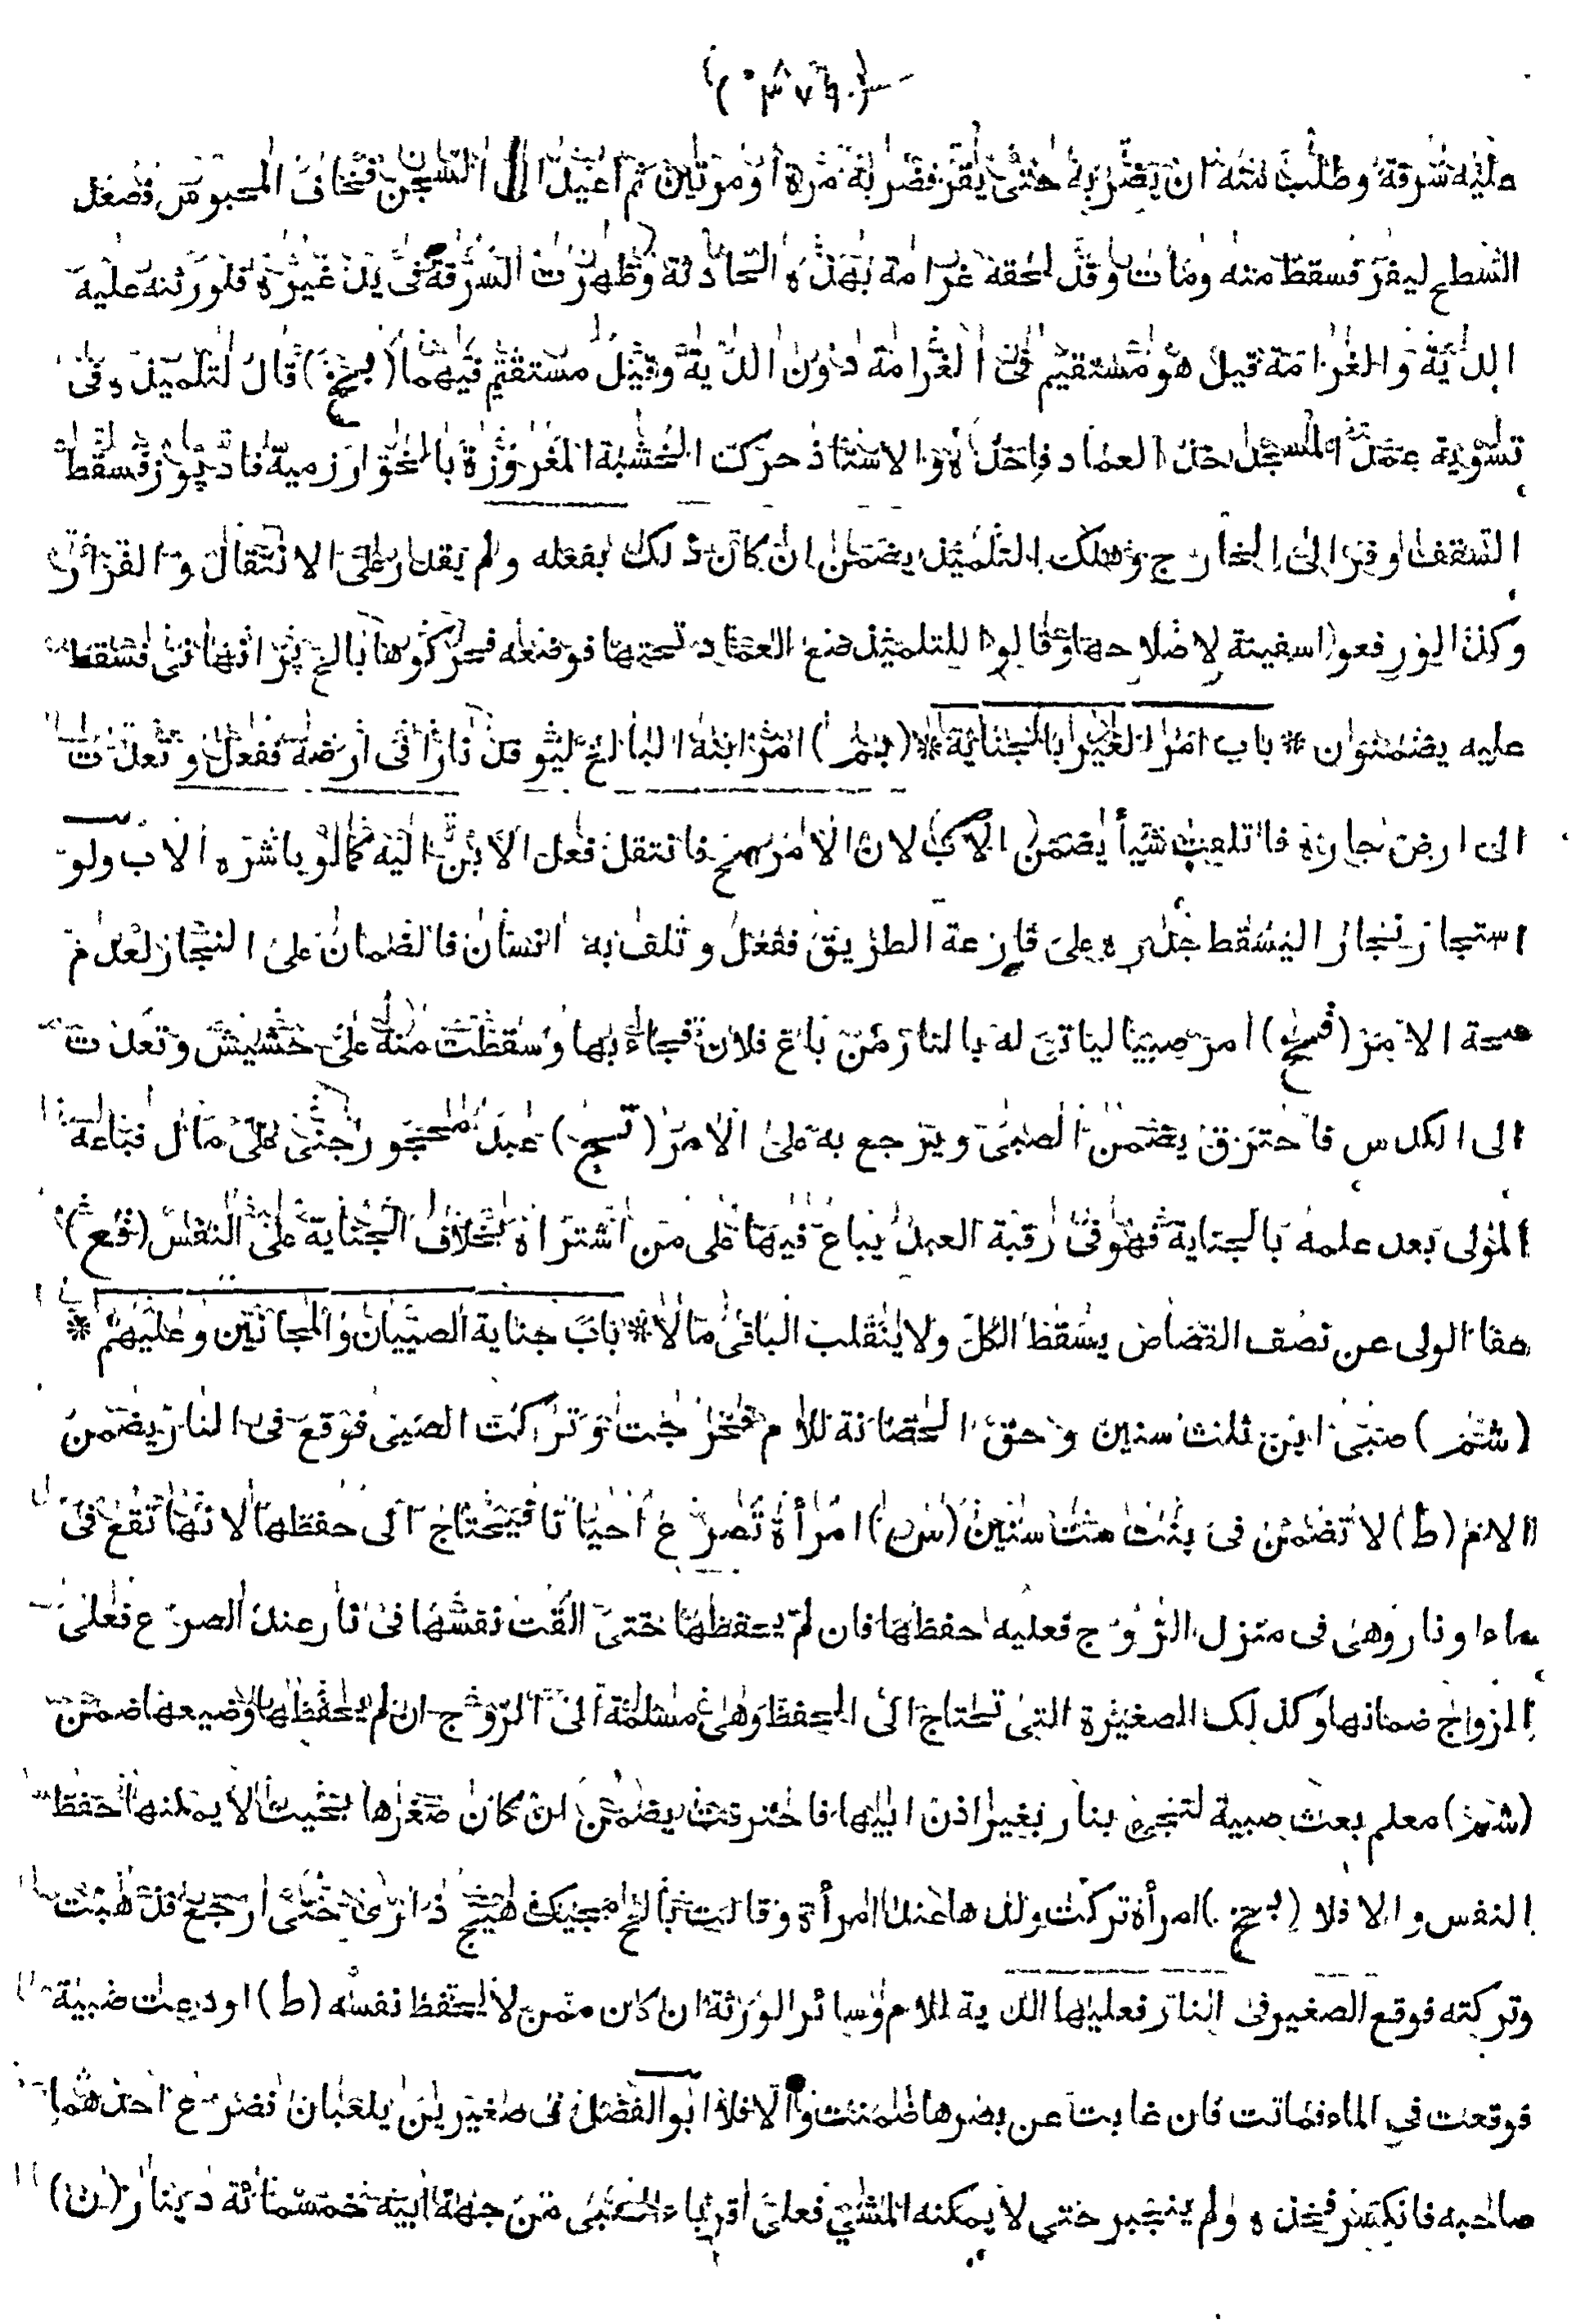 عليه سرقة وطلب منه ان يضربه حتى يقر فضربه مرة او مرتين ثم اعيد الى السجن فخاف المحبوس فصعد
السطح ليفر فسقط منه ومات وقد لحقه غرامة بهذه الحادثة وظهرت السرقة فى يد غيره فلورثته عليه
الدية والغرامة قيل هو مستقيم فى الغرامة دون الدية وقيل مستقيم فيهما (بخ) قال لتلميذه فى
تسوية عمد المسجد خذ العماد فاخذه والاستاذ حرك الخشبة المغروزة بالخوارزمية فسقط
السقف وفر الى الخارج وهلك التلميذ يضمن ان كان ذلك بفعله ولم يقدر على الانتقال والفرار
وكذا لو رفعوا سفينة لاصلاحها وقالوا للتلميذ ضع العماد تحتها فوضعه فحركوها فسقط
عليه يضمنون * باب امر الغير بالجناية * (بم) امر ابنه البالغ ليوقد نارا فى ارضه ففعل وتعدت
الى ارض جاره فاتلفت شيأ يضمن الاب لان الامر صح فانتقل فعل الابن اليه كما لو باشره الاب ولو
استجار نجار اليسقط جداره على قارعة الطريق ففعل وتلف به انسان فالضمان على النجار لعدم
صحة الامر امر صبيا لياتى له بالنار من باغ فلان فجاء بها وسقطت منه على حشيش وتعدت
الى الكدس فاحترق يضمن الصبى ويرجع به على الآمر عبد محجور جنى على مال فباعه
المولى بعد علمه بالجناية فهو فى رقبة العبد يباع فيها على من اشتراه بخلاف الجناية على النفس (قع)
عفا الولى عن نصف القصاص يسقط الكل ولا ينقلب الباقى مالا * باب جناية الصبيان والمجانين وعليهم *
(شم) صبى ابن ثلث سنين وحق الحضانة للام فخرجت وتركت الصبى فوقع فى النار يضمن
الام (ط) لا تضمن فى بنت ست سنين (س) امرأة تصرع احيانا فيحتاج الى حفظها لانها تقع فى
ماء او نار وهى فى منزل الزوج فعليه حفظها فان لم يحفظها حتى القت نفسها فى نار عند الصرع فعلى
الزواج ضمانها وكذلك الصغيرة التى تحتاج الى الحفظ وهى مسلمة الى الزوج ان لم يحفظها وضيعها ضمن
(شم) معلم بعث صبية لتجئ بنار بغير اذن ابيها فاحترقت يضمن ان كان صغرها بحيث لا يمكنها حفظ
النفس والا فلا (بخ) امرأة تركت ولدها عند امرأة وقالت حتى ارجع فذهبت
وتركته فوقع الصغير فى النار فعليها الدية للام وسائر الورثة ان كان ممن لا يحفظ نفسه (ط) اودعت صبية
فوقعت فى الماء فماتت فان غابت عن بصرها ضمنت والا فلا ابو الفضل فى صغيرين يلعبان فصرع احدهما
صاحبه فانكسر فخذه ولم ينجبر حتى لا يمكنه المشى فعلى اقرباء الصبى من جهة ابيه خمسمائة دينار (ن)